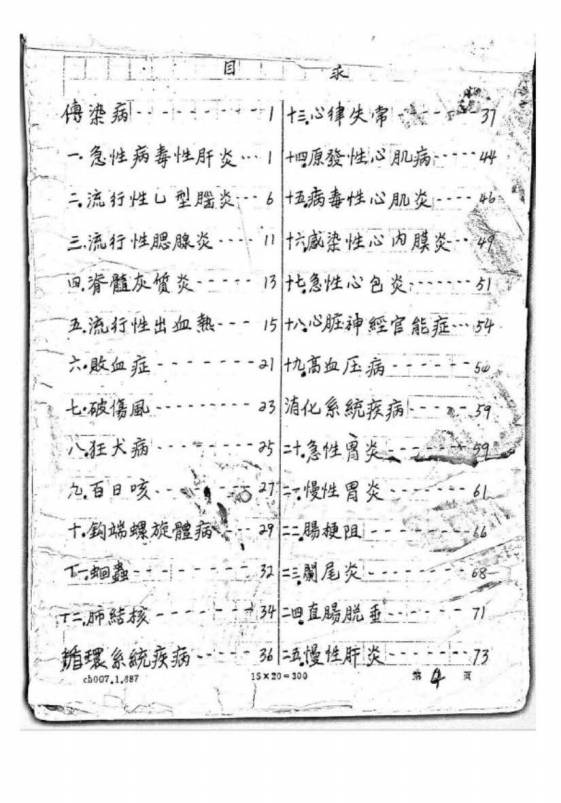 目 录
傳染病 1
一.急性病毒性肝炎 1
二.流行性乙型腦炎 6
三.流行性腮腺炎 11
四.脊髓灰質炎 13
五.流行性出血熱 15
六.敗血症 21
七.破傷風 23
八.狂犬病 25
九.百日咳 27
十.鈎端螺旋體病 29
十一.蛔蟲 32
十二.肺結核 34
循環系統疾病 36
十三.心律失常 37
十四.原發性心肌病 44
十五.病毒性心肌炎 46
十六.感染性心内膜炎 49
十七.急性心包炎 51
十八.心脏神經官能症 54
十九.高血压病
消化系統疾病 59
二十.急性胃炎 59
二一.慢性胃炎 61
二二.腸梗阻 66
二三.闌尾炎 68
二四.直腸脱垂 71
二五.慢性肝炎 73
ch007.1.887
15×20=300
第 4 页